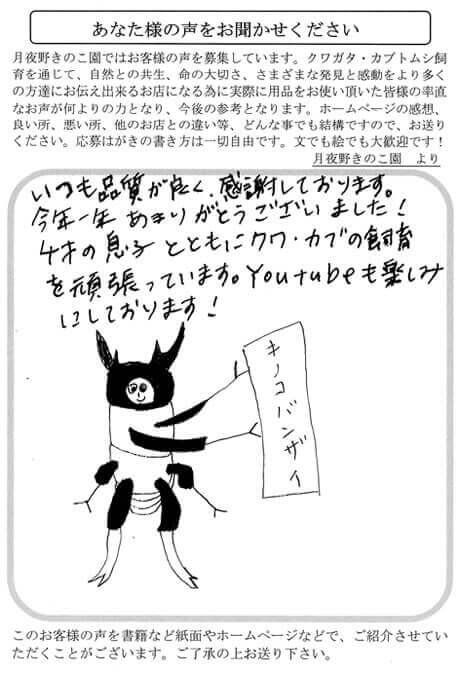 あなた様の声をお聞かせください
月夜野きのこ園ではお客様の声を募集しています。クワガタ・カブトムシ飼
育を通じて、自然との共生、命の大切さ、さまざまな発見と感動をより多く
の方達にお伝え出来るお店になる為に実際に用品をお使い頂いた皆様の率直
なお声が何よりの力となり、今後の参考となります。ホームページの感想、
良い所、悪い所、他のお店との違い等、どんな事でも結構ですので、お送り
ください。応募はがきの書き方は一切自由です。文でも絵でも大歓迎です！
月夜野きのこ園　より
いつも品質が良く、感謝しております。
今年一年 ありがとうございました！
4才の息子とともにクワ・カブの飼育
を頑張っています。Youtubeも楽しみ
にしております！
キノコバンザイ
このお客様の声を書籍など紙面やホームページなどで、ご紹介させてい
ただくことがございます。ご了承の上お送り下さい。